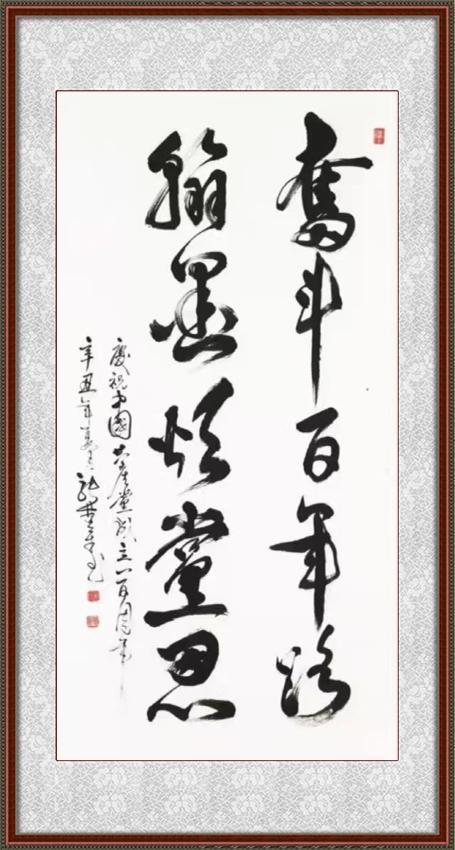 奮斗百年路
翰墨颂黨恩
慶祝中國共産黨成立一百周年
辛丑年夏月